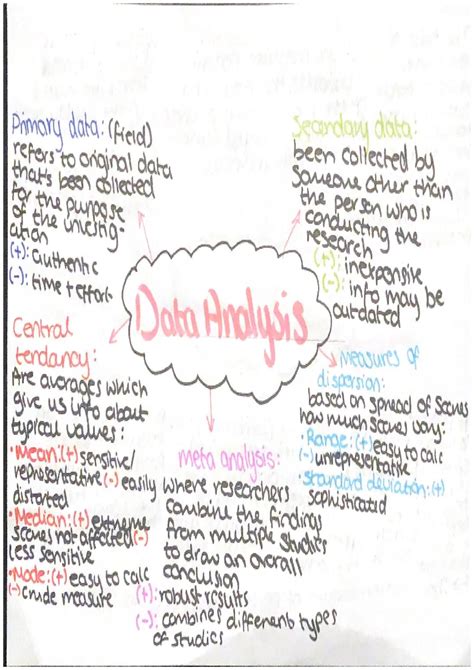 Primary data: (field)
refers to original data
that's been collected
for the purpose
of the investig-
ation
(+): authentic
(-): time + effort
Secondary data:
been collected by
someone other than
the person who is
conducting the
research
(+): inexpensive
(-): info may be
outdated
Data Analysis
Central
tendancy:
Are averages which
give us info about
typical values:
•Mean:(+) sensitive/
representative (-) easily
distorted
•Median:(+) extreme
scores not affected (-)
less sensitive
•Mode:(+) easy to calc
(-) crude measure
meta analysis:
where researchers
combine the findings
from multiple studies
to draw an overall
conclusion
(+): robust results
(-): combines different types
of studies
Measures of
dispersion:
based on spread of scores
how much scores vary:
•Range:(+) easy to calc
(-) unrepresentative
•Standard deviation:(+)
sophisticated